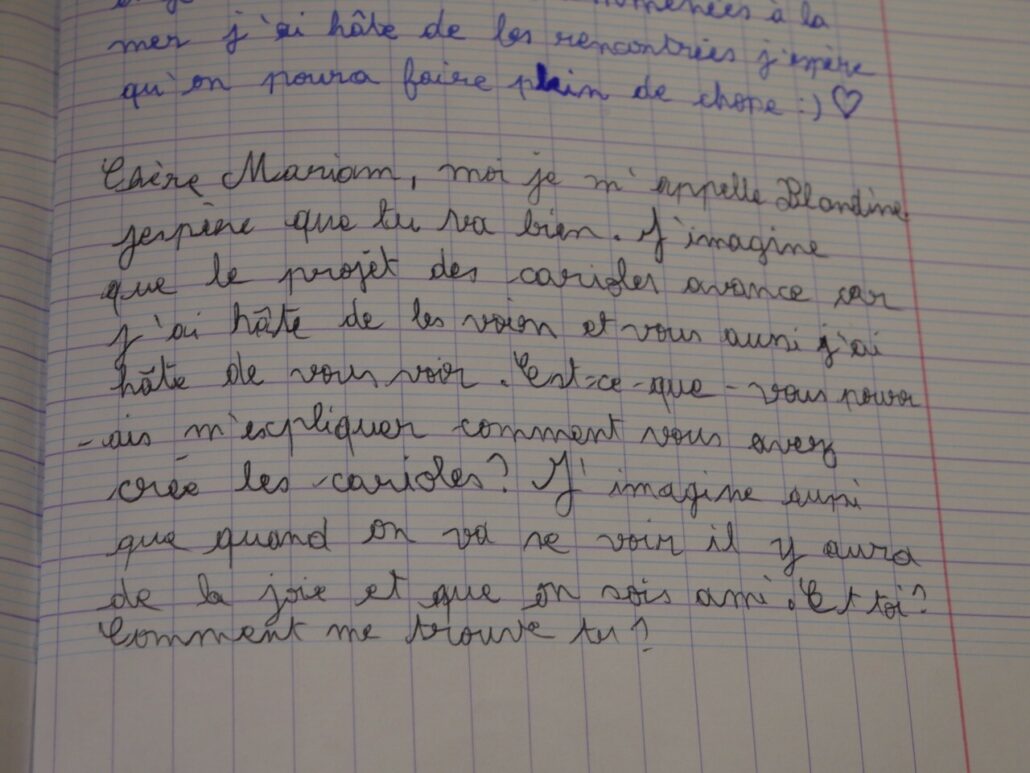 à la
mer j'ai hâte de les rencontrées j'espère
qu'on poura faire plein de chose :) ♡
Chère Mariam, moi je m'appelle Blandine
jespère que tu va bien. J'imagine
que le projet des carioles avance car
j'ai hâte de les voion et vous aussi j'ai
hâte de vous voir. Est-ce-que-vous pour
-ais m'expliquer comment vous avez
crée les carioles? J'imagine aussi
que quand on va se voir il y aura
de la joie et que on sois ami. Et toi?
Comment me trouve tu?